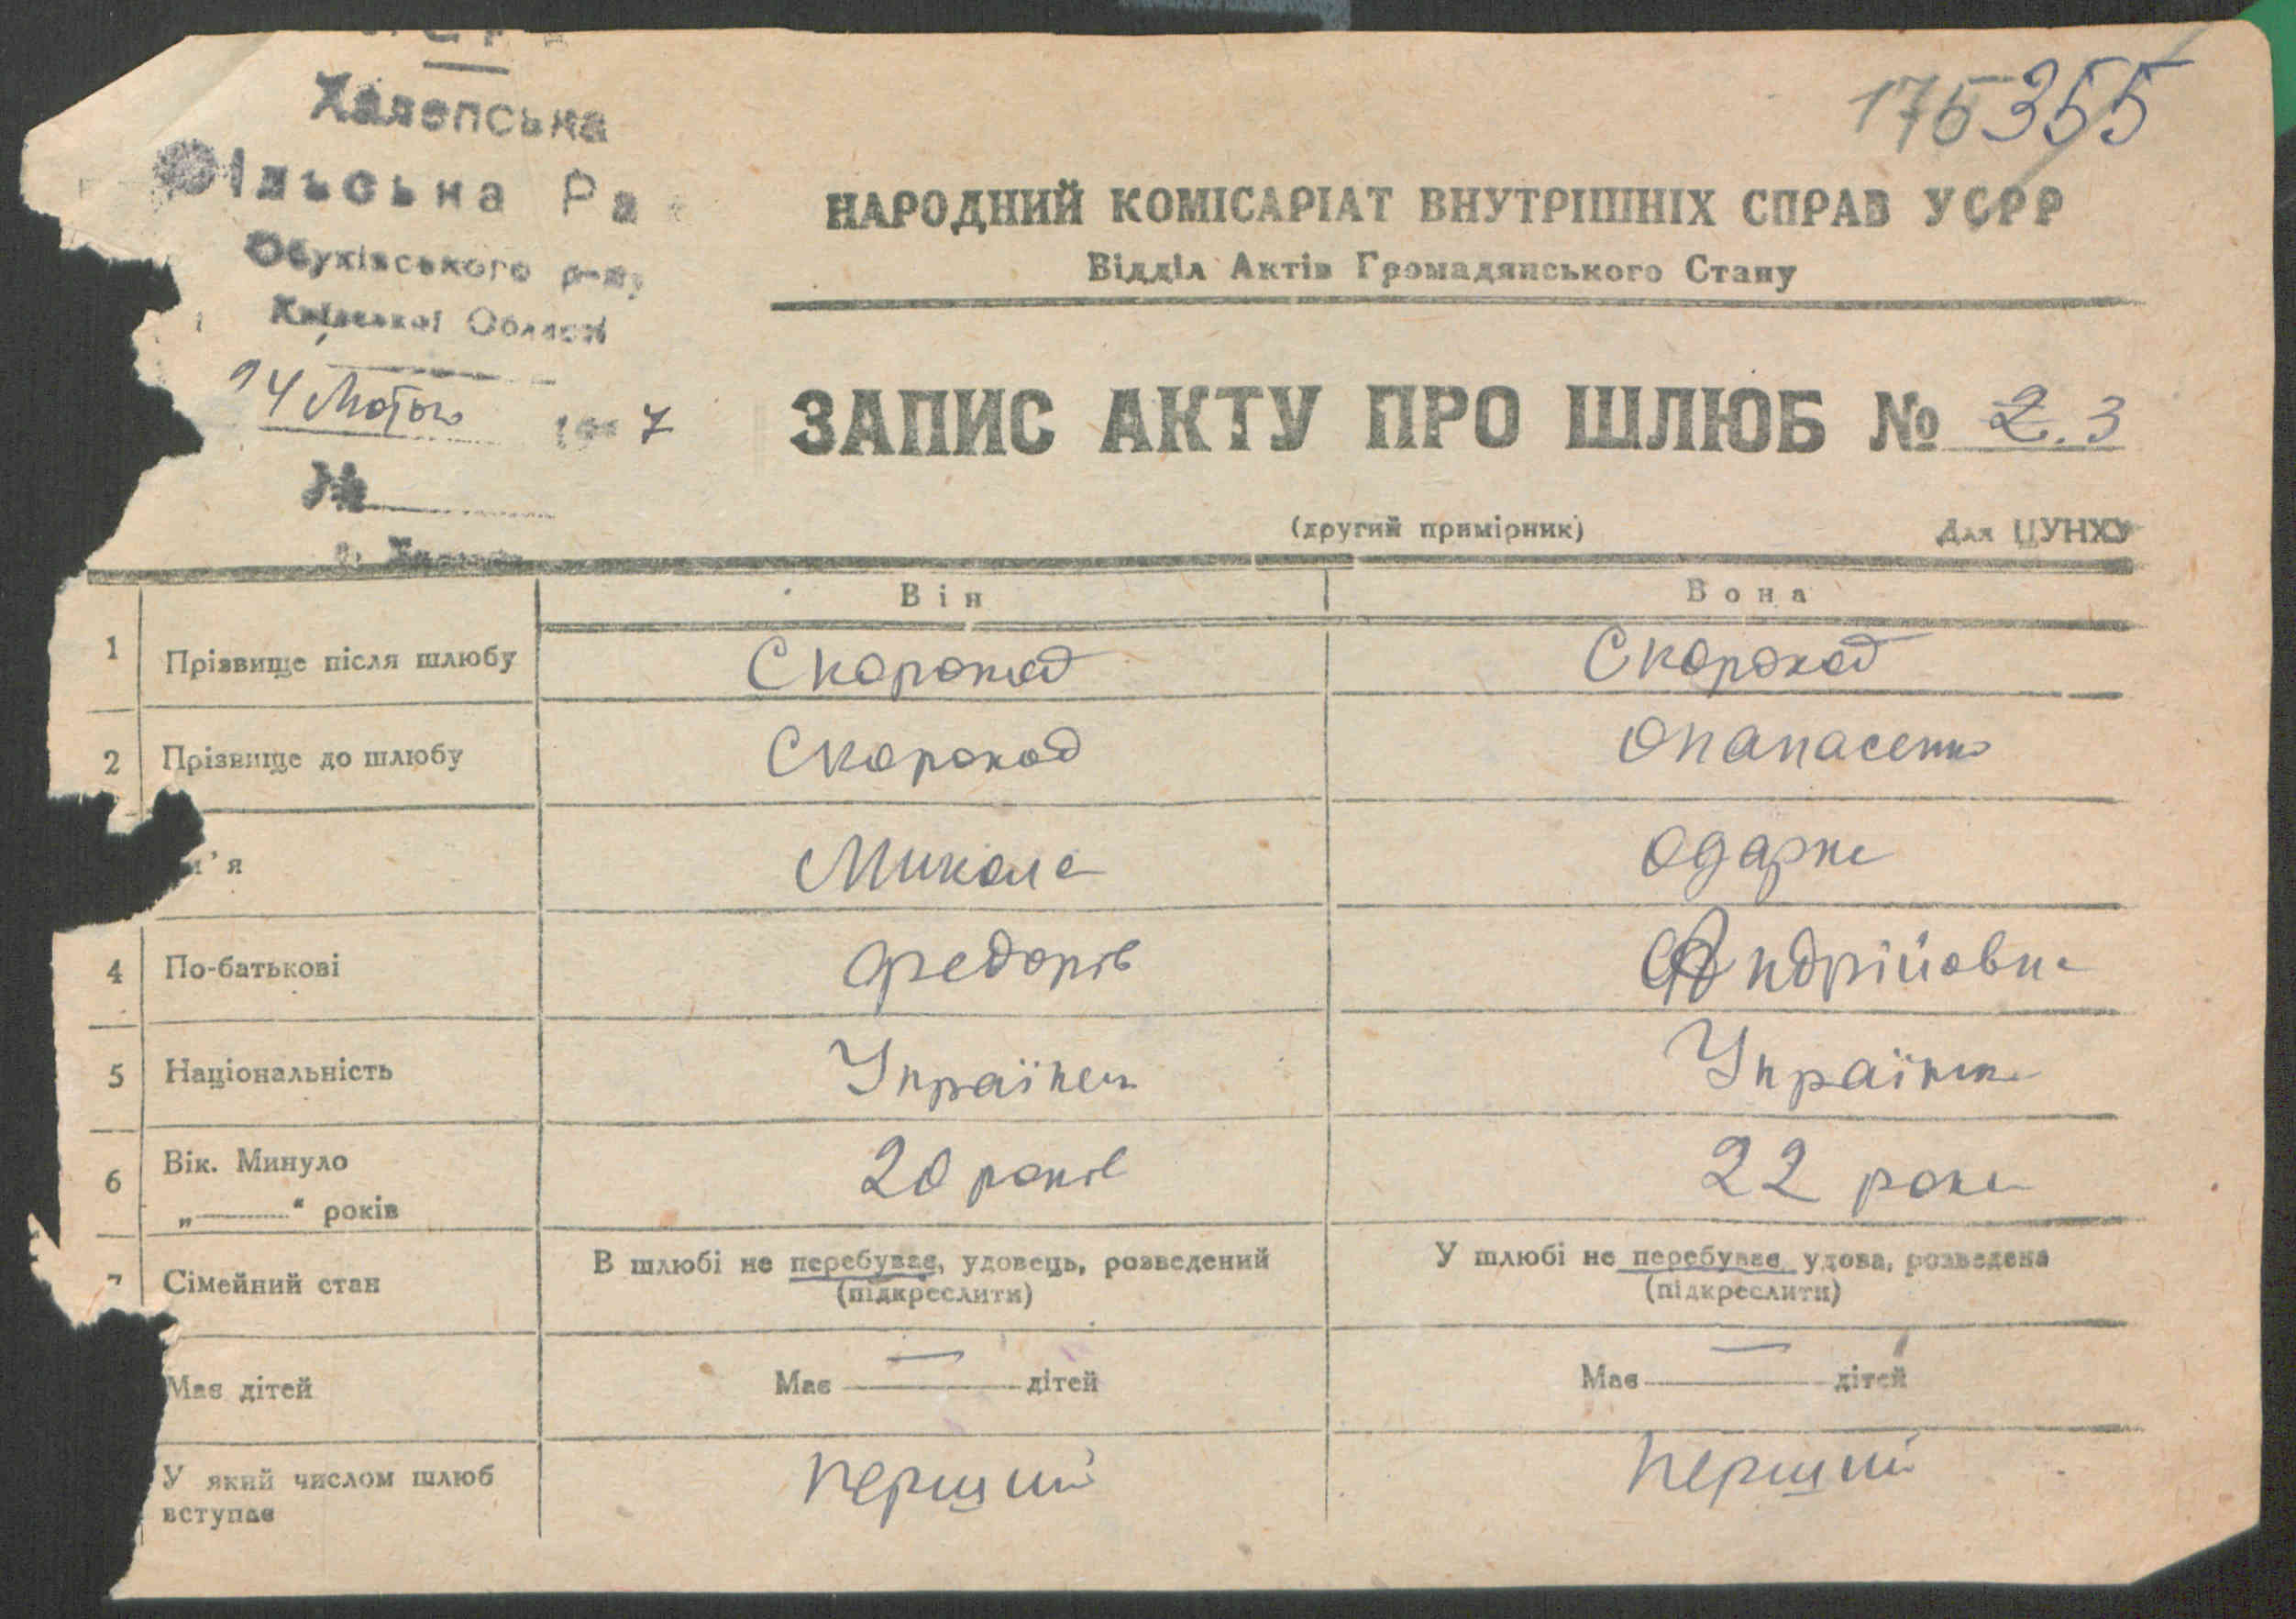 Халепська
Сільська Ра
Обухівського р-ну
Київської Області
14 Лютого 193 7
№
с. Халепья
175 355
НАРОДНИЙ КОМІСАРІАТ ВНУТРІШНІХ СПРАВ УСРР
Відділ Актів Громадянського Стану
ЗАПИС АКТУ ПРО ШЛЮБ № 2. 3
(другий примірник) Для ЦУНХУ
Він Вона
1 Прізвище після шлюбу Скороход Скороход
2 Прізвище до шлюбу Скороход Опанасенко
м'я Микола Одарка
4 По-батькові Федорів Андрійовна
5 Національність Українец Українка
6 Вік. Минуло
„———“ років 20 років 22 роки
7 Сімейний стан В шлюбі не перебуває, удовець, розведений У шлюбі не перебуває, удова, розведена
(підкреслити) (підкреслити)
Має дітей Має — дітей Має — дітей
У який числом шлюб
вступає перший перший